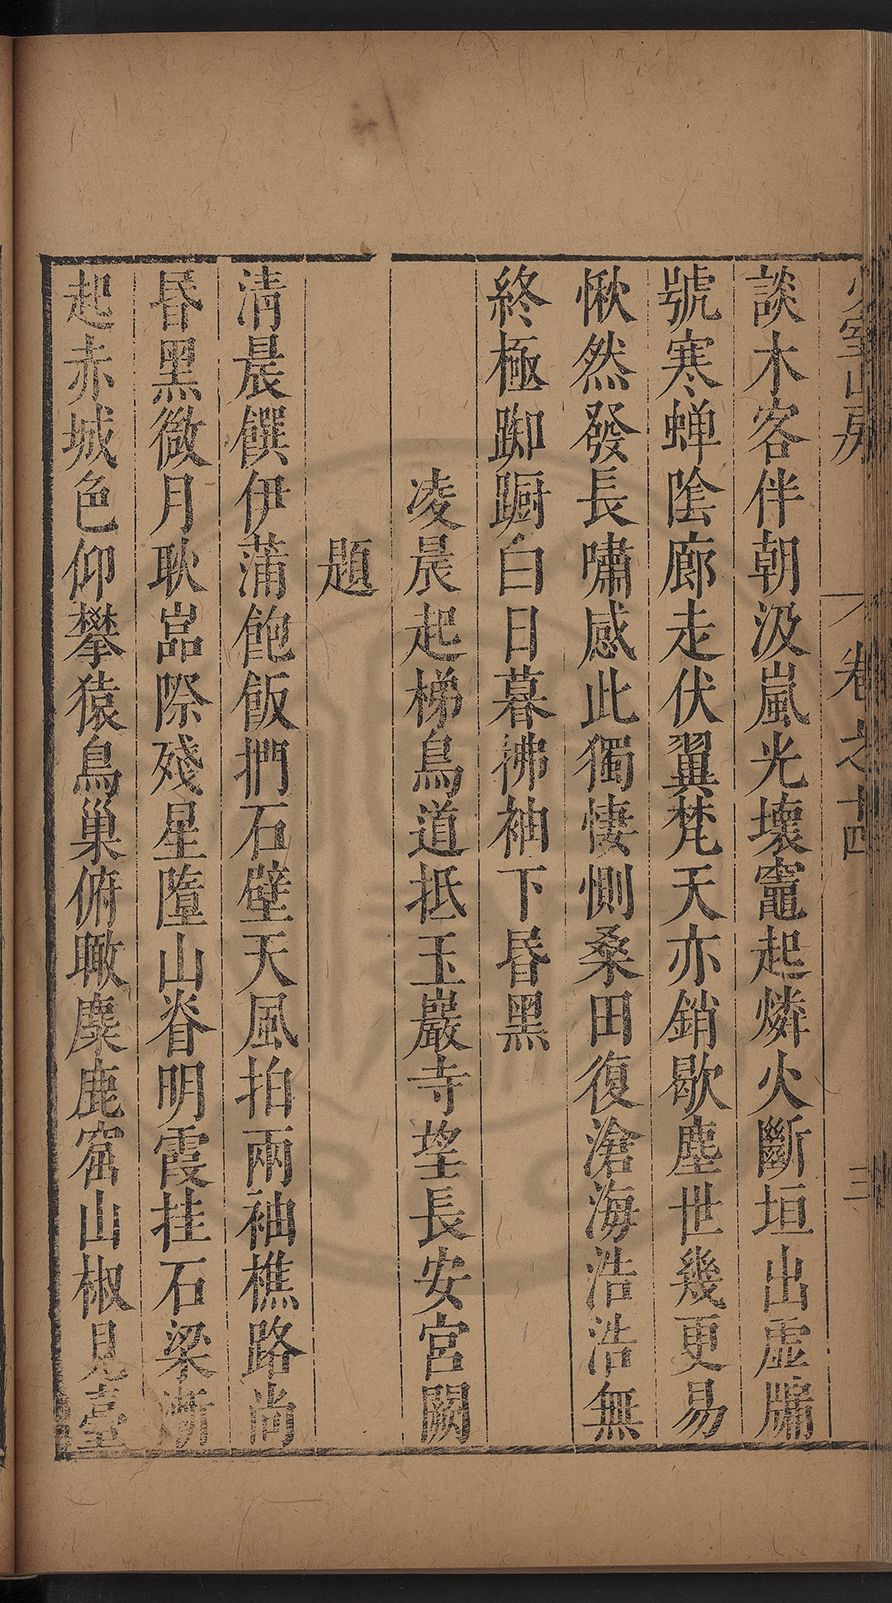 少室山房 卷之十四 三
談木客伴朝汲嵐光壞竈起燐火斷垣出虛牖
號寒蝉陰廊走伏翼梵天亦銷歇塵世幾更易
愀然發長嘯感此獨悽惻桑田復滄海浩浩無
終極踟蹰白日暮拂袖下昏黑
凌晨起梯鳥道抵玉巖寺望長安宮闕
題
清晨饌伊蒲飽飯捫石壁天風拍兩袖樵路尚
昏黑微月耿嵓際殘星墮山脊明霞挂石梁漸
起赤城色仰攀猿鳥巢俯瞰麋鹿窟山椒見臺